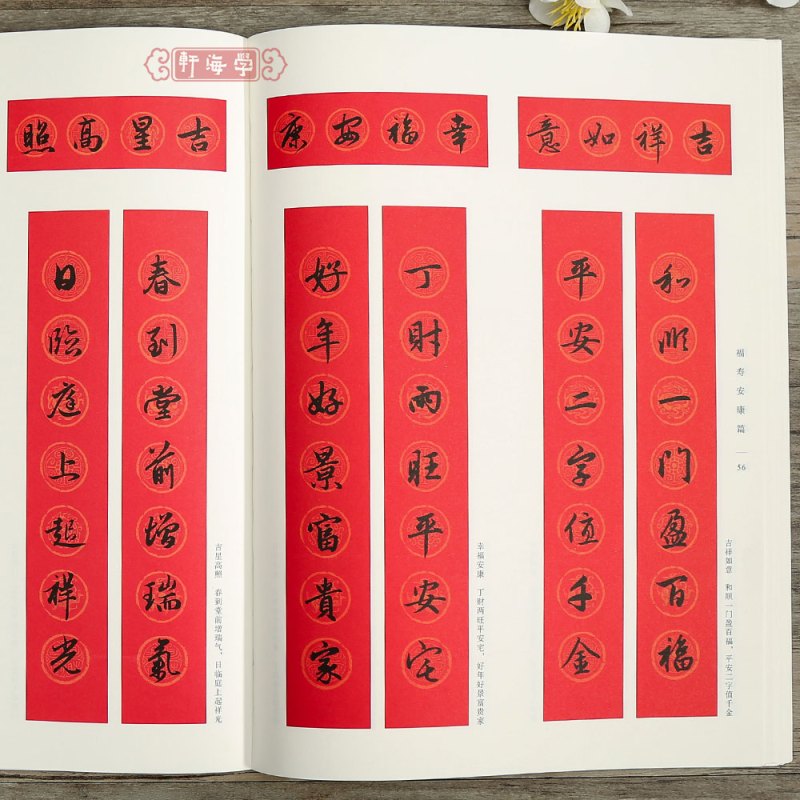 學海軒
福寿安康篇
56
吉祥如意
和順一門盈百福
平安二字值千金
吉祥如意 和顺一门盈百福、平安二字值千金
幸福安康
丁財兩旺平安宅
好年好景富貴家
幸福安康 丁财两旺平安宅、好年好景富贵家
吉星高照
春到堂前增瑞氣
日臨庭上起祥光
吉星高照 春到堂前增瑞气、日临庭上起祥光